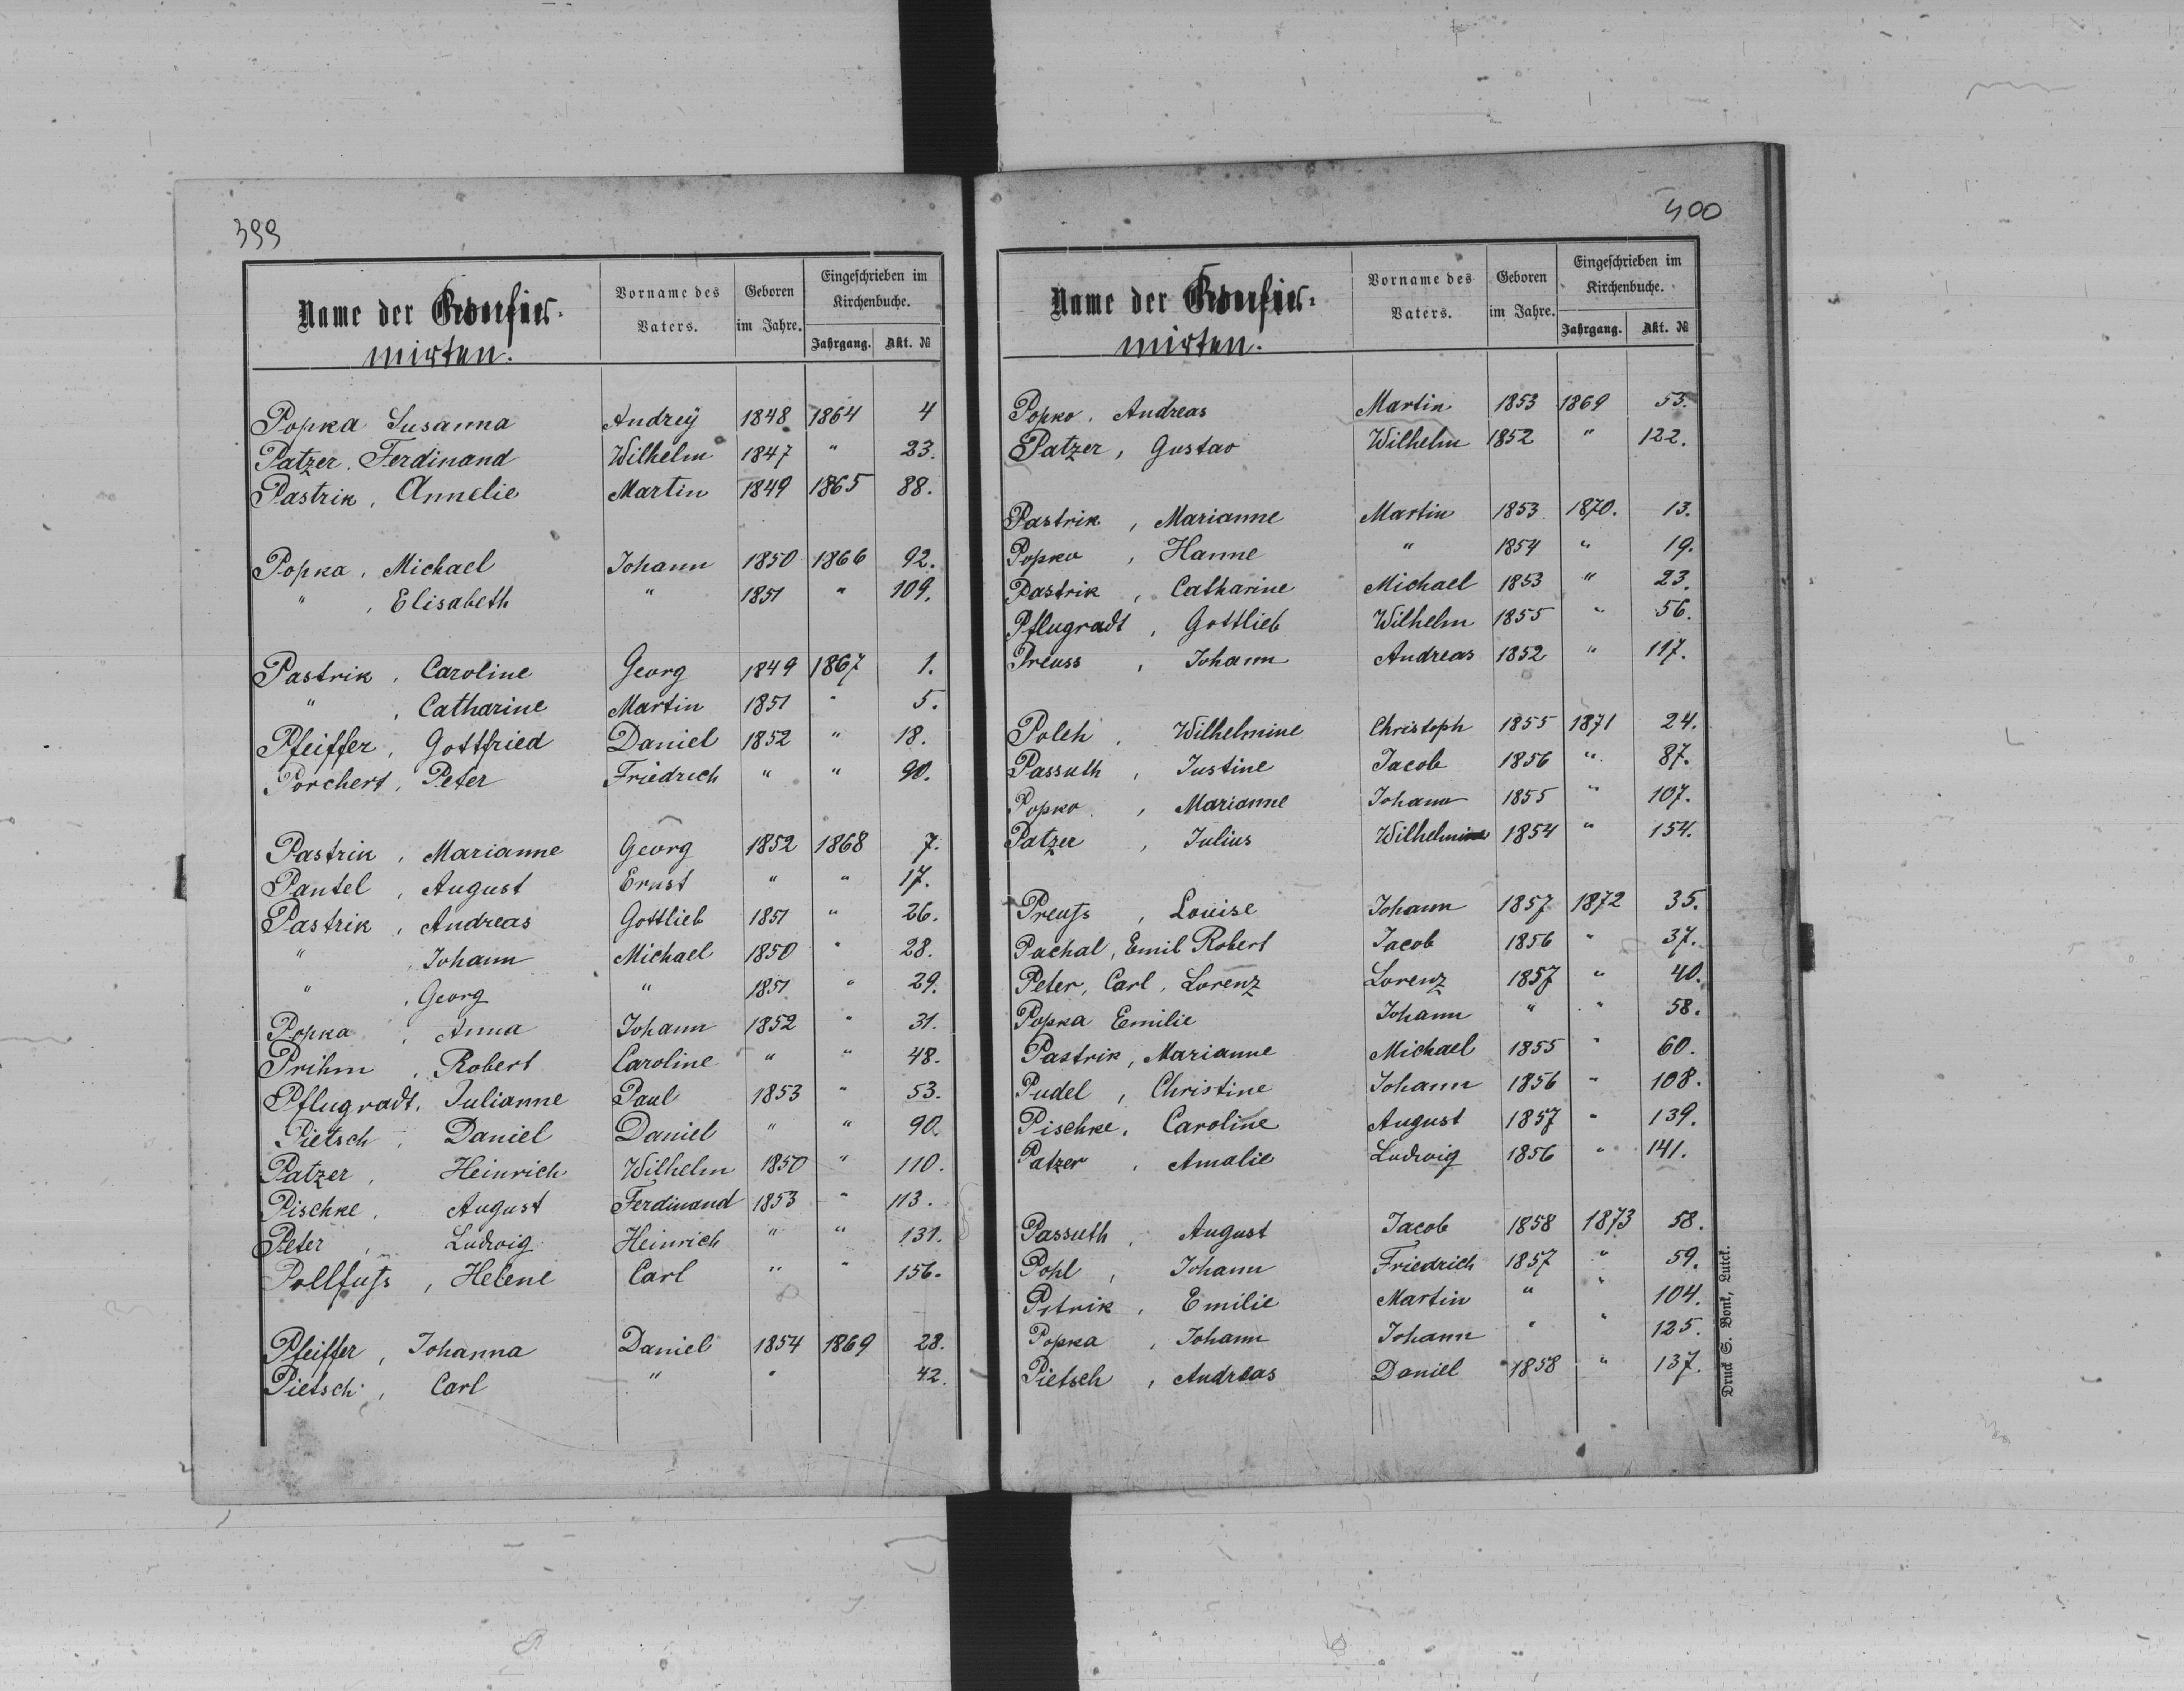 399
Name der Confir-
mirten.
Vorname des Vaters.
Geboren im Jahre.
Eingeschrieben im Kirchenbuche.
Jahrgang. Akt. №
Popka Susanna Andrey 1848 1864 4
Patzer. Ferdinand Wilhelm 1847 " 23.
Pastrik, Annelie Martin 1849 1865 88.
Popka, Michael Johann 1850 1866 92.
" , Elisabeth " 1851 " 109.
Pastrik, Caroline Georg 1849 1867 1.
" , Catharine Martin 1851 " 5.
Pfeiffer, Gottfried Daniel 1852 " 18.
Porchert, Peter Friedrich " " 90.
Pastrik, Marianne Georg 1852 1868 7.
Pantel, August Ernst " " 17.
Pastrik, Andreas Gottlieb 1851 " 26.
" , Johann Michael 1850 " 28.
" , Georg " 1851 " 29.
Popka, Anna Johann 1852 " 31.
Prihm, Robert Caroline " " 48.
Pflugradt, Julianne Paul 1853 " 53.
Pietsch, Daniel Daniel " " 90
Patzer, Heinrich Wilhelm 1850 " 110.
Pischke, August Ferdinand 1853 " 113.
Peter, Ludwig Heinrich " " 131.
Pollfuſs, Helene Carl " " 156.
Pfeiffer, Johanna Daniel 1854 1869 28.
Pietsch, Carl " " 42.
400
Name der Confir-
mirten.
Vorname des Vaters.
Geboren im Jahre.
Eingeschrieben im Kirchenbuche.
Jahrgang. Akt. №
Popko. Andreas Martin 1853 1869 53.
Patzer, Gustav Wilhelm 1852 " 122.
Pastrik, Marianne Martin 1853 1870. 13.
Popko, Hanne " 1854 " 19.
Pastrik, Catharine Michael 1853 " 23.
Pflugradt, Gottlieb Wilhelm 1855 " 56.
Preuss, Johann Andreas 1852 " 117.
Poleh, Wilhelmine Christoph 1855 1871 24.
Passuth, Justine Jacob 1856 " 87.
Popko, Marianne Johann 1855 " 107.
Patzer, Julius Wilhelm 1854 " 154.
Preuſs, Louise Johann 1857 1872 35.
Pachal, Emil Robert Jacob 1856 " 37.
Peter, Carl, Lorenz Lorenz 1857 " 40.
Popka Emilie Johann " " 58.
Pastrik, Marianne Michael 1855 " 60.
Pudel, Christine Johann 1856 " 108.
Pischke, Caroline August 1857 " 139.
Patzer, Amalie Ludwig 1856 " 141.
Passuth, August Jacob 1858 1873 58.
Pohl, Johann Friedrich 1857 " 59.
Petrik, Emilie Martin " " 104.
Popka, Johann Johann " " 125.
Pietsch, Andreas Daniel 1858 " 137.
Druck S. Bonk, Luck.